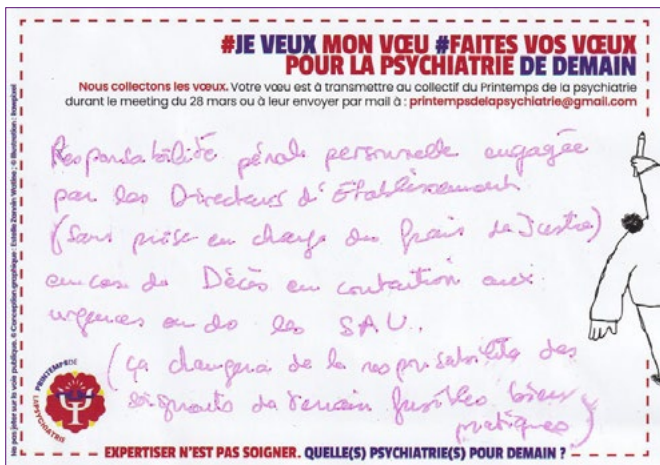 #JE VEUX MON VŒU #FAITES VOS VŒUX
POUR LA PSYCHIATRIE DE DEMAIN
Nous collectons les vœux. Votre vœu est à transmettre au collectif du Printemps de la psychiatrie
durant le meeting du 28 mars ou à leur envoyer par mail à : printempsdelapsychiatrie@gmail.com
Responsabilité pénale personnelle engagée
par les Directeurs d'Établissement
(Sans prise en charge des frais de Justice)
en cas de Décès en contention aux
urgences ou les SAU.
(ça changera de la responsabilité des
soignants de terrain fusibles bien
pratiques)
PRINTEMPS DE
LA PSYCHIATRIE
EXPERTISER N'EST PAS SOIGNER. QUELLE(S) PSYCHIATRIE(S) POUR DEMAIN ?
Ne pas jeter sur la voie publique. © Conception graphique : Estelle © Illustration :